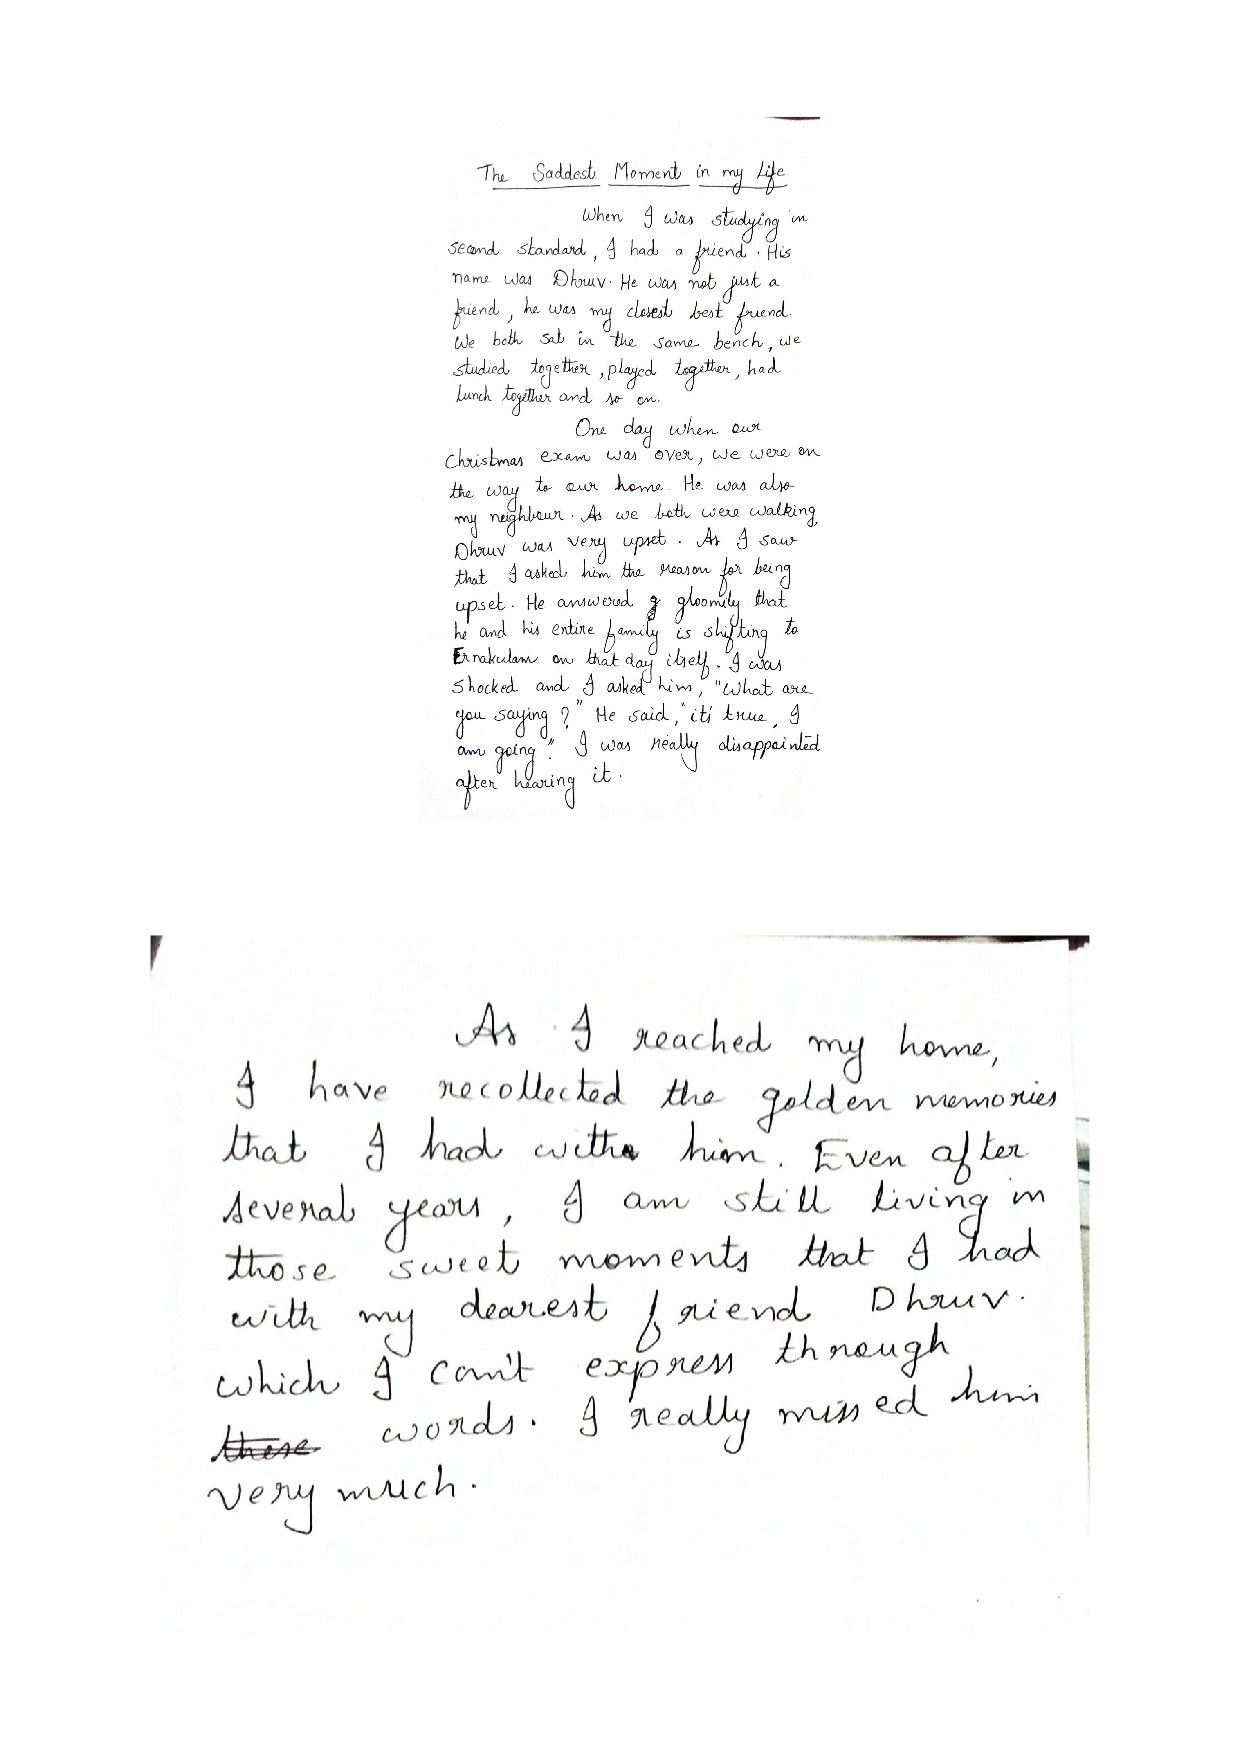 The Saddest Moment in my Life
When I was studying in
second standard, I had a friend. His
name was Dhruv. He was not just a
friend, he was my closest best friend.
We both sat in the same bench, we
studied together, played together, had
lunch together and so on.
One day when our
Christmas exam was over, we were on
the way to our home. He was also
my neighbour. As we both were walking,
Dhruv was very upset. As I saw
that I asked him the reason for being
upset. He answered gloomily that
he and his entire family is shifting to
Ernakulam on that day itself. I was
shocked and I asked him, "What are
you saying?" He said, "it's true, I
am going". I was really disappointed
after hearing it.
As I reached my home,
I have recollected the golden memories
that I had with him. Even after
several years, I am still living in
those sweet moments that I had
with my dearest friend Dhruv.
which I can't express through
these words. I really missed him
very much.